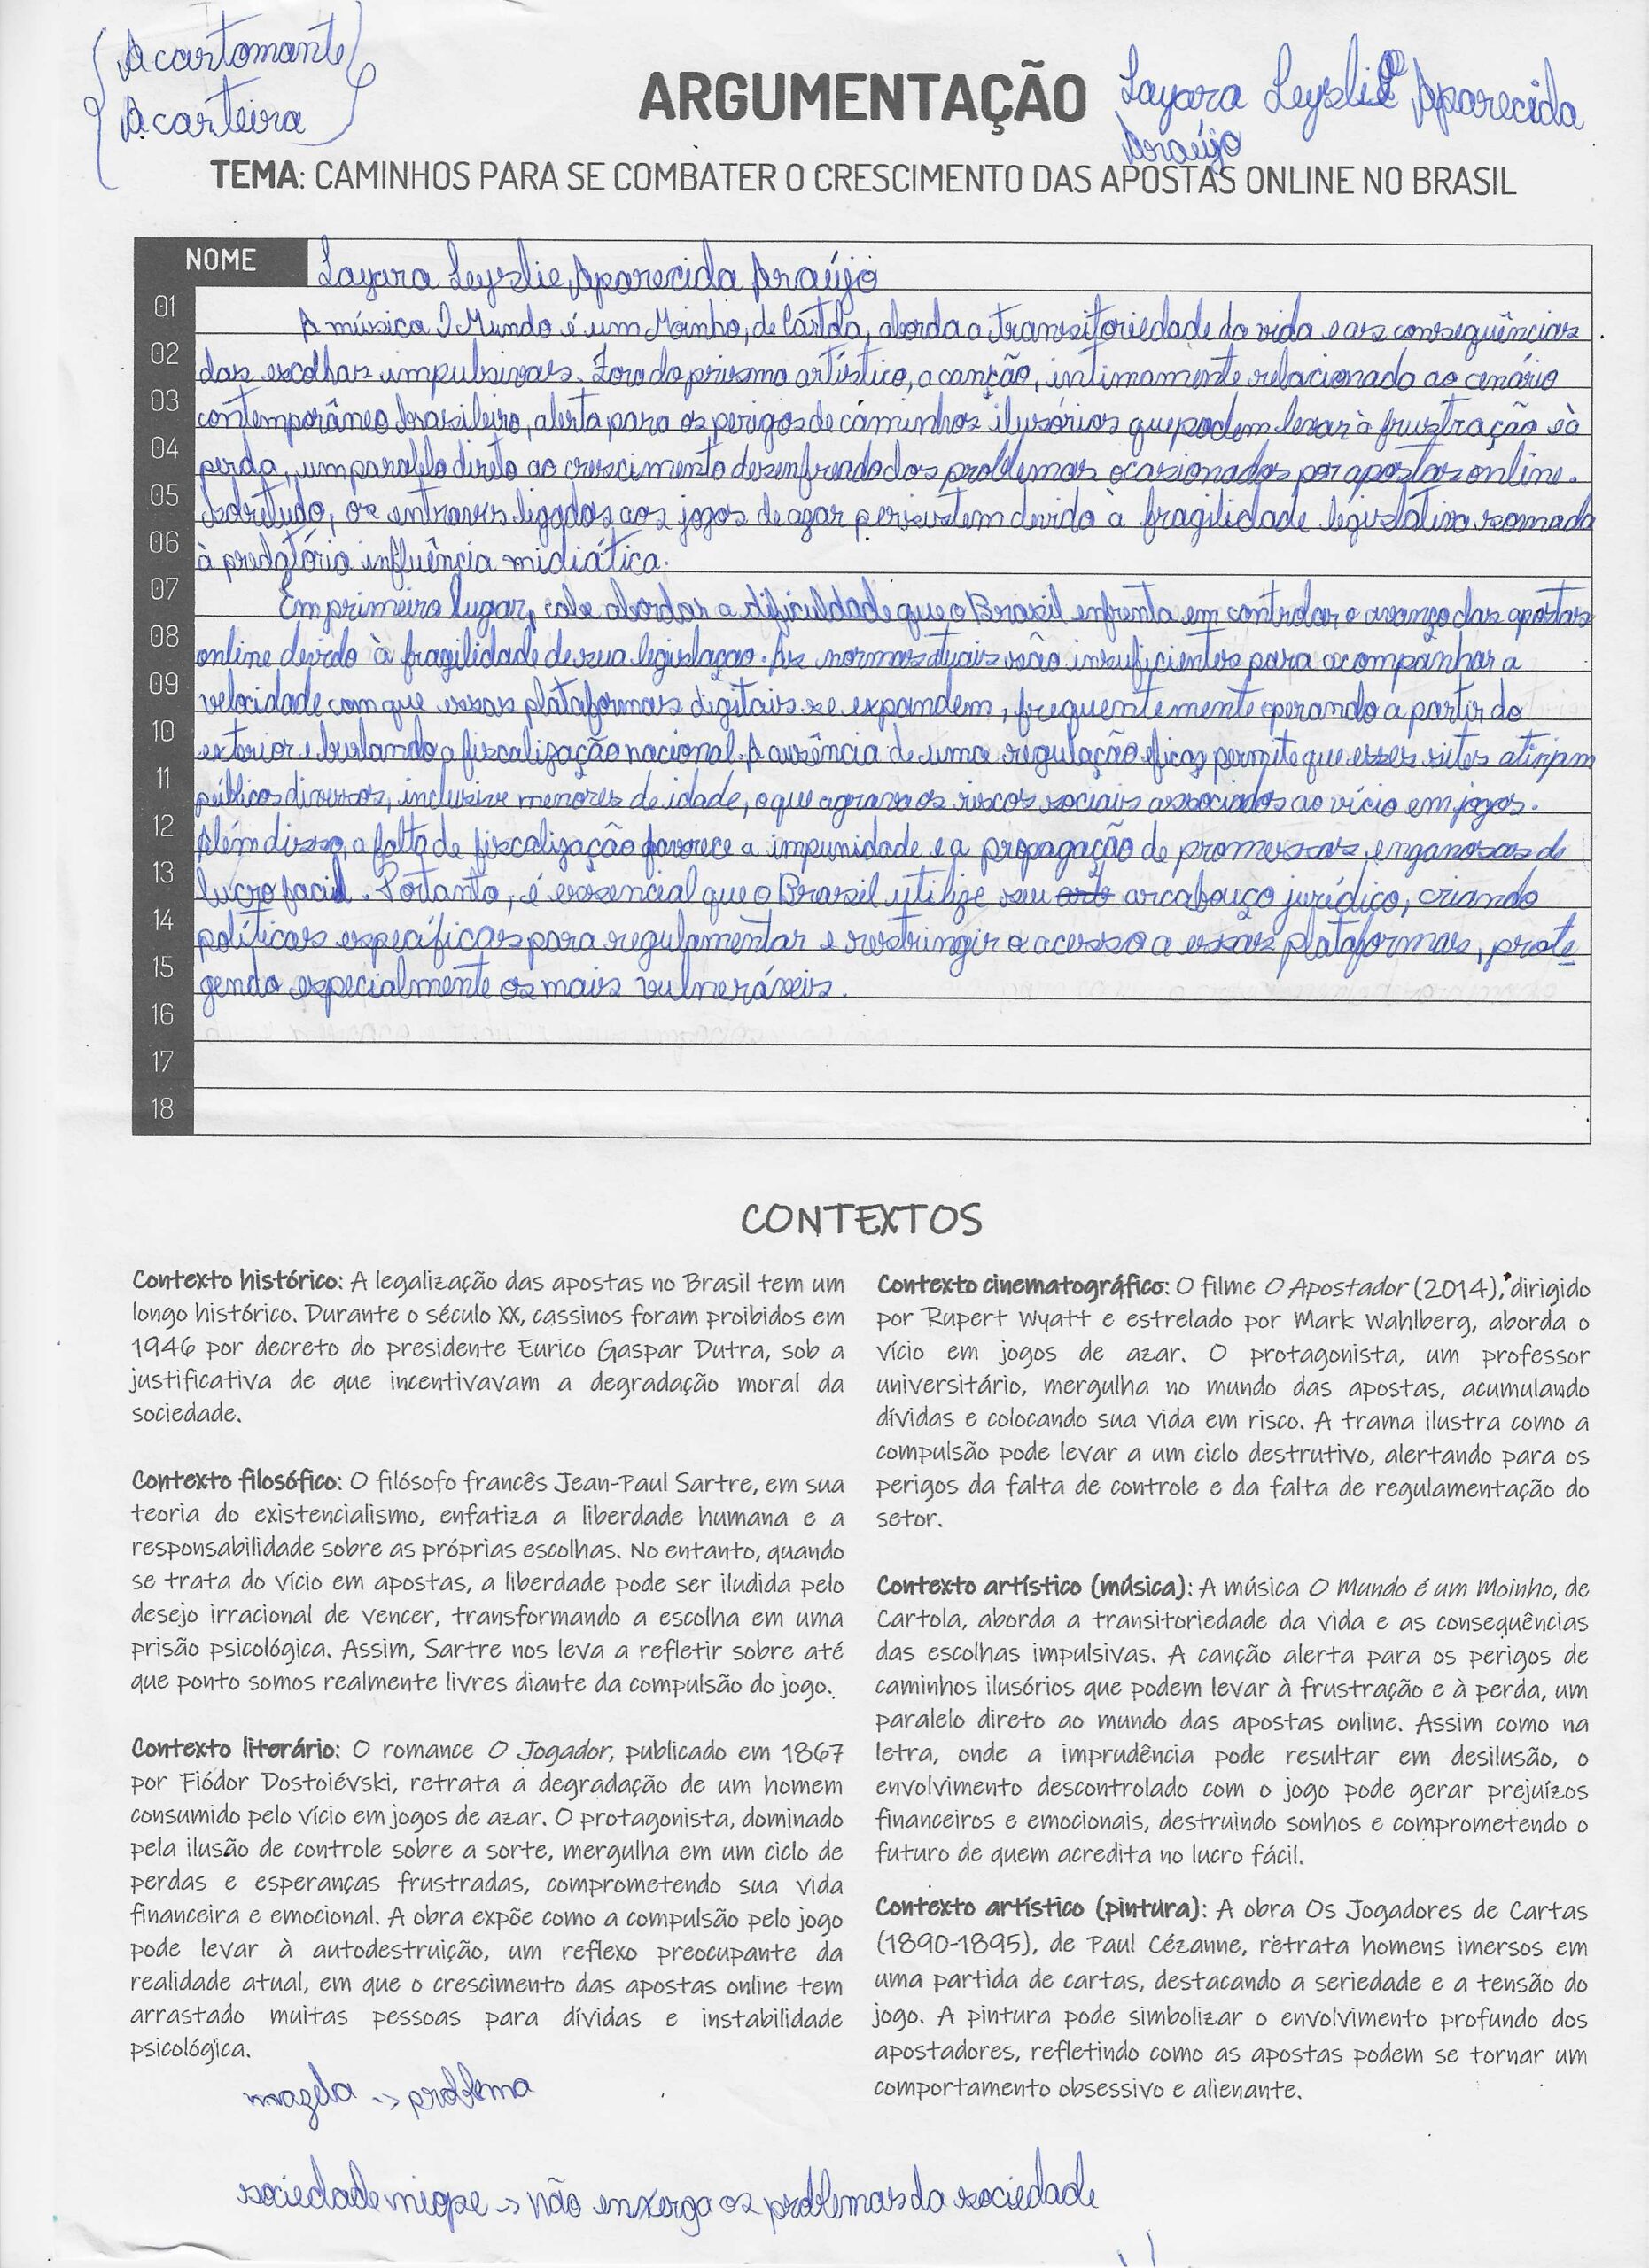 A cartomante
A carteira
ARGUMENTAÇÃO
Layara Leyslie Aparecida
Araújo
TEMA: CAMINHOS PARA SE COMBATER O CRESCIMENTO DAS APOSTAS ONLINE NO BRASIL
NOME Layara Leyslie Aparecida Araújo
01 A música O Mundo é um Moinho, de Cartola, aborda a transitoriedade da vida e as consequências
02 das escolhas impulsivas. Fora do prisma artístico, a canção, intimamente relacionada ao cenário
03 contemporâneo brasileiro, alerta para os perigos de caminhos ilusórios que podem levar à frustração e à
04 perda, um paralelo direto ao crescimento desenfreado dos problemas ocasionados por apostas online.
05 Sobretudo, os entraves ligados aos jogos de azar persistem devido à fragilidade legislativa somada
06 à predatória influência midiática.
07 Em primeiro lugar, cabe abordar a dificuldade que o Brasil enfrenta em controlar o avanço das apostas
08 online devido à fragilidade de sua legislação. As normas atuais são insuficientes para acompanhar a
09 velocidade com que essas plataformas digitais se expandem, frequentemente operando a partir do
10 exterior e burlando a fiscalização nacional. A ausência de uma regulação eficaz permite que esses sites atinjam
11 públicos diversos, inclusive menores de idade, o que agrava os riscos sociais associados ao vício em jogos.
12 Além disso, a falta de fiscalização favorece a impunidade e a propagação de promessas enganosas de
13 lucro facil. Portanto, é essencial que o Brasil utilize seu arcabouço jurídico, criando
14 políticas específicas para regulamentar e restringir o acesso a essas plataformas, prote
15 gendo especialmente os mais vulneráveis.
16
17
18
CONTEXTOS
Contexto histórico: A legalização das apostas no Brasil tem um
longo histórico. Durante o século XX, cassinos foram proibidos em
1946 por decreto do presidente Eurico Gaspar Dutra, sob a
justificativa de que incentivavam a degradação moral da
sociedade.
Contexto filosófico: O filósofo francês Jean-Paul Sartre, em sua
teoria do existencialismo, enfatiza a liberdade humana e a
responsabilidade sobre as próprias escolhas. No entanto, quando
se trata do vício em apostas, a liberdade pode ser iludida pelo
desejo irracional de vencer, transformando a escolha em uma
prisão psicológica. Assim, Sartre nos leva a refletir sobre até
que ponto somos realmente livres diante da compulsão do jogo.
Contexto literário: O romance O Jogador, publicado em 1867
por Fiódor Dostoiévski, retrata a degradação de um homem
consumido pelo vício em jogos de azar. O protagonista, dominado
pela ilusão de controle sobre a sorte, mergulha em um ciclo de
perdas e esperanças frustradas, comprometendo sua vida
financeira e emocional. A obra expõe como a compulsão pelo jogo
pode levar à autodestruição, um reflexo preocupante da
realidade atual, em que o crescimento das apostas online tem
arrastado muitas pessoas para dívidas e instabilidade
psicológica.
Contexto cinematográfico: O filme O Apostador (2014), dirigido
por Rupert Wyatt e estrelado por Mark Wahlberg, aborda o
vício em jogos de azar. O protagonista, um professor
universitário, mergulha no mundo das apostas, acumulando
dívidas e colocando sua vida em risco. A trama ilustra como a
compulsão pode levar a um ciclo destrutivo, alertando para os
perigos da falta de controle e da falta de regulamentação do
setor.
Contexto artístico (música): A música O Mundo é um Moinho, de
Cartola, aborda a transitoriedade da vida e as consequências
das escolhas impulsivas. A canção alerta para os perigos de
caminhos ilusórios que podem levar à frustração e à perda, um
paralelo direto ao mundo das apostas online. Assim como na
letra, onde a imprudência pode resultar em desilusão, o
envolvimento descontrolado com o jogo pode gerar prejuízos
financeiros e emocionais, destruindo sonhos e comprometendo o
futuro de quem acredita no lucro fácil.
Contexto artístico (pintura): A obra Os Jogadores de Cartas
(1890-1895), de Paul Cézanne, retrata homens imersos em
uma partida de cartas, destacando a seriedade e a tensão do
jogo. A pintura pode simbolizar o envolvimento profundo dos
apostadores, refletindo como as apostas podem se tornar um
comportamento obsessivo e alienante.
mazela -> problema
sociedade miope -> não enxerga os problemas da sociedade